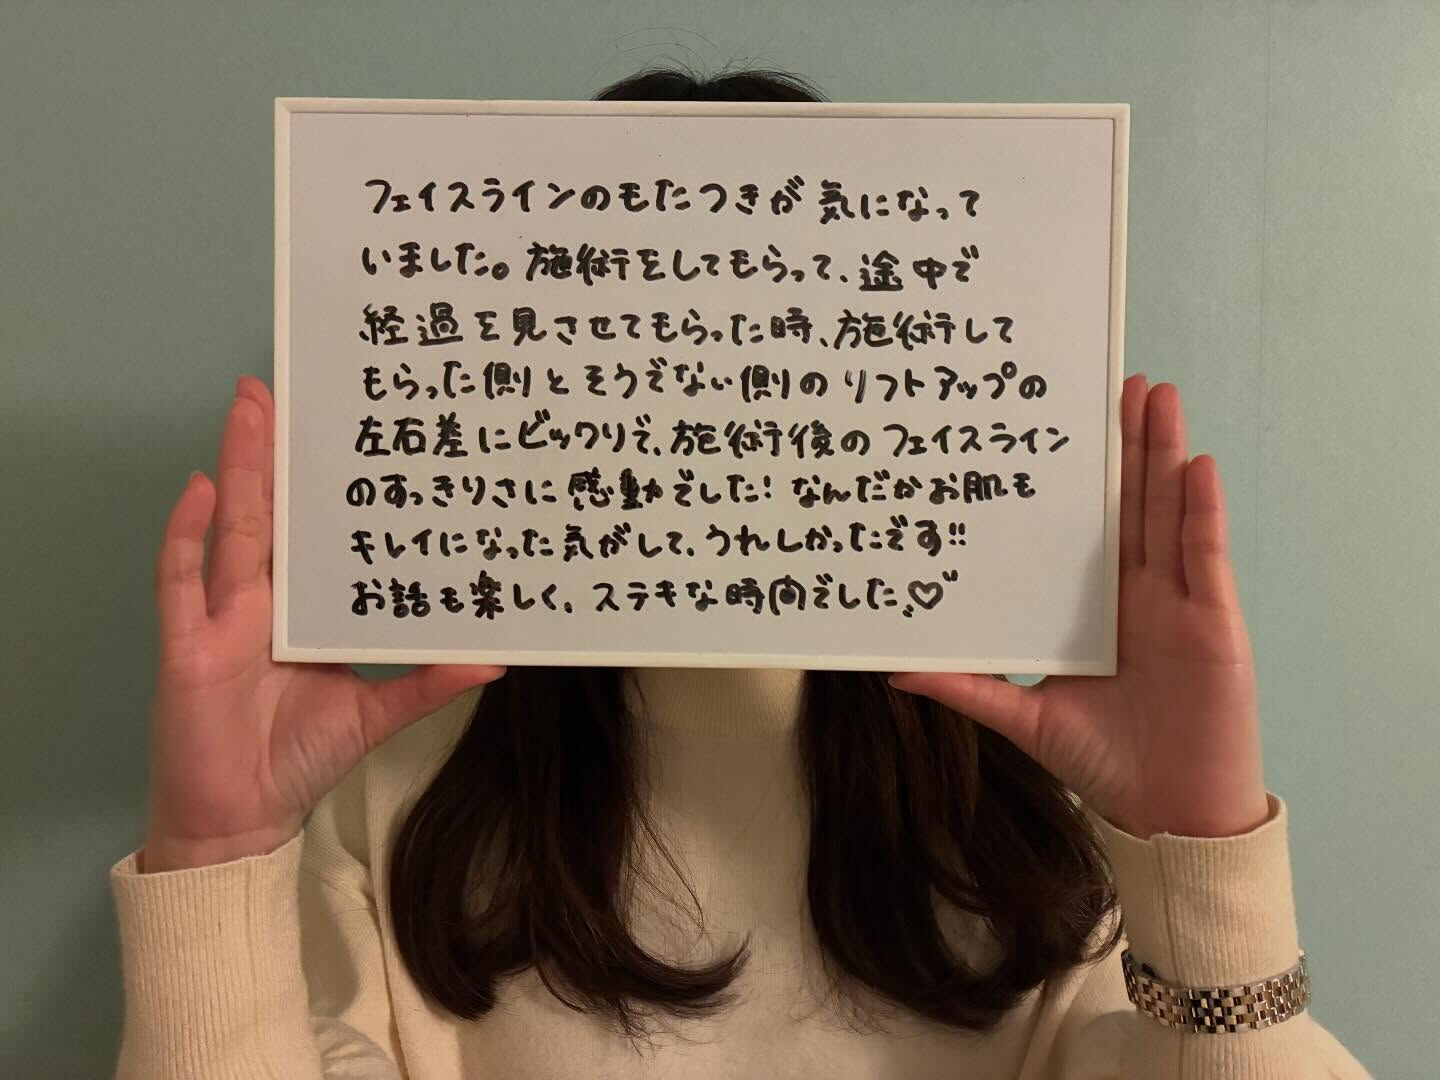 フェイスラインのもたつきが気になって
いました。施術をしてもらって、途中で
経過を見させてもらった時、施術して
もらった側とそうでない側のリフトアップの
左右差にビックリで、施術後のフェイスライン
のすっきりさに感動でした！なんだかお肌も
キレイになった気がして、うれしかったです!!
お話も楽しく、ステキな時間でした♡